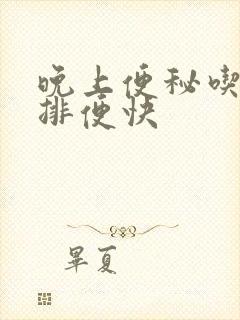 晚上便秘喫
排便快
畢夏